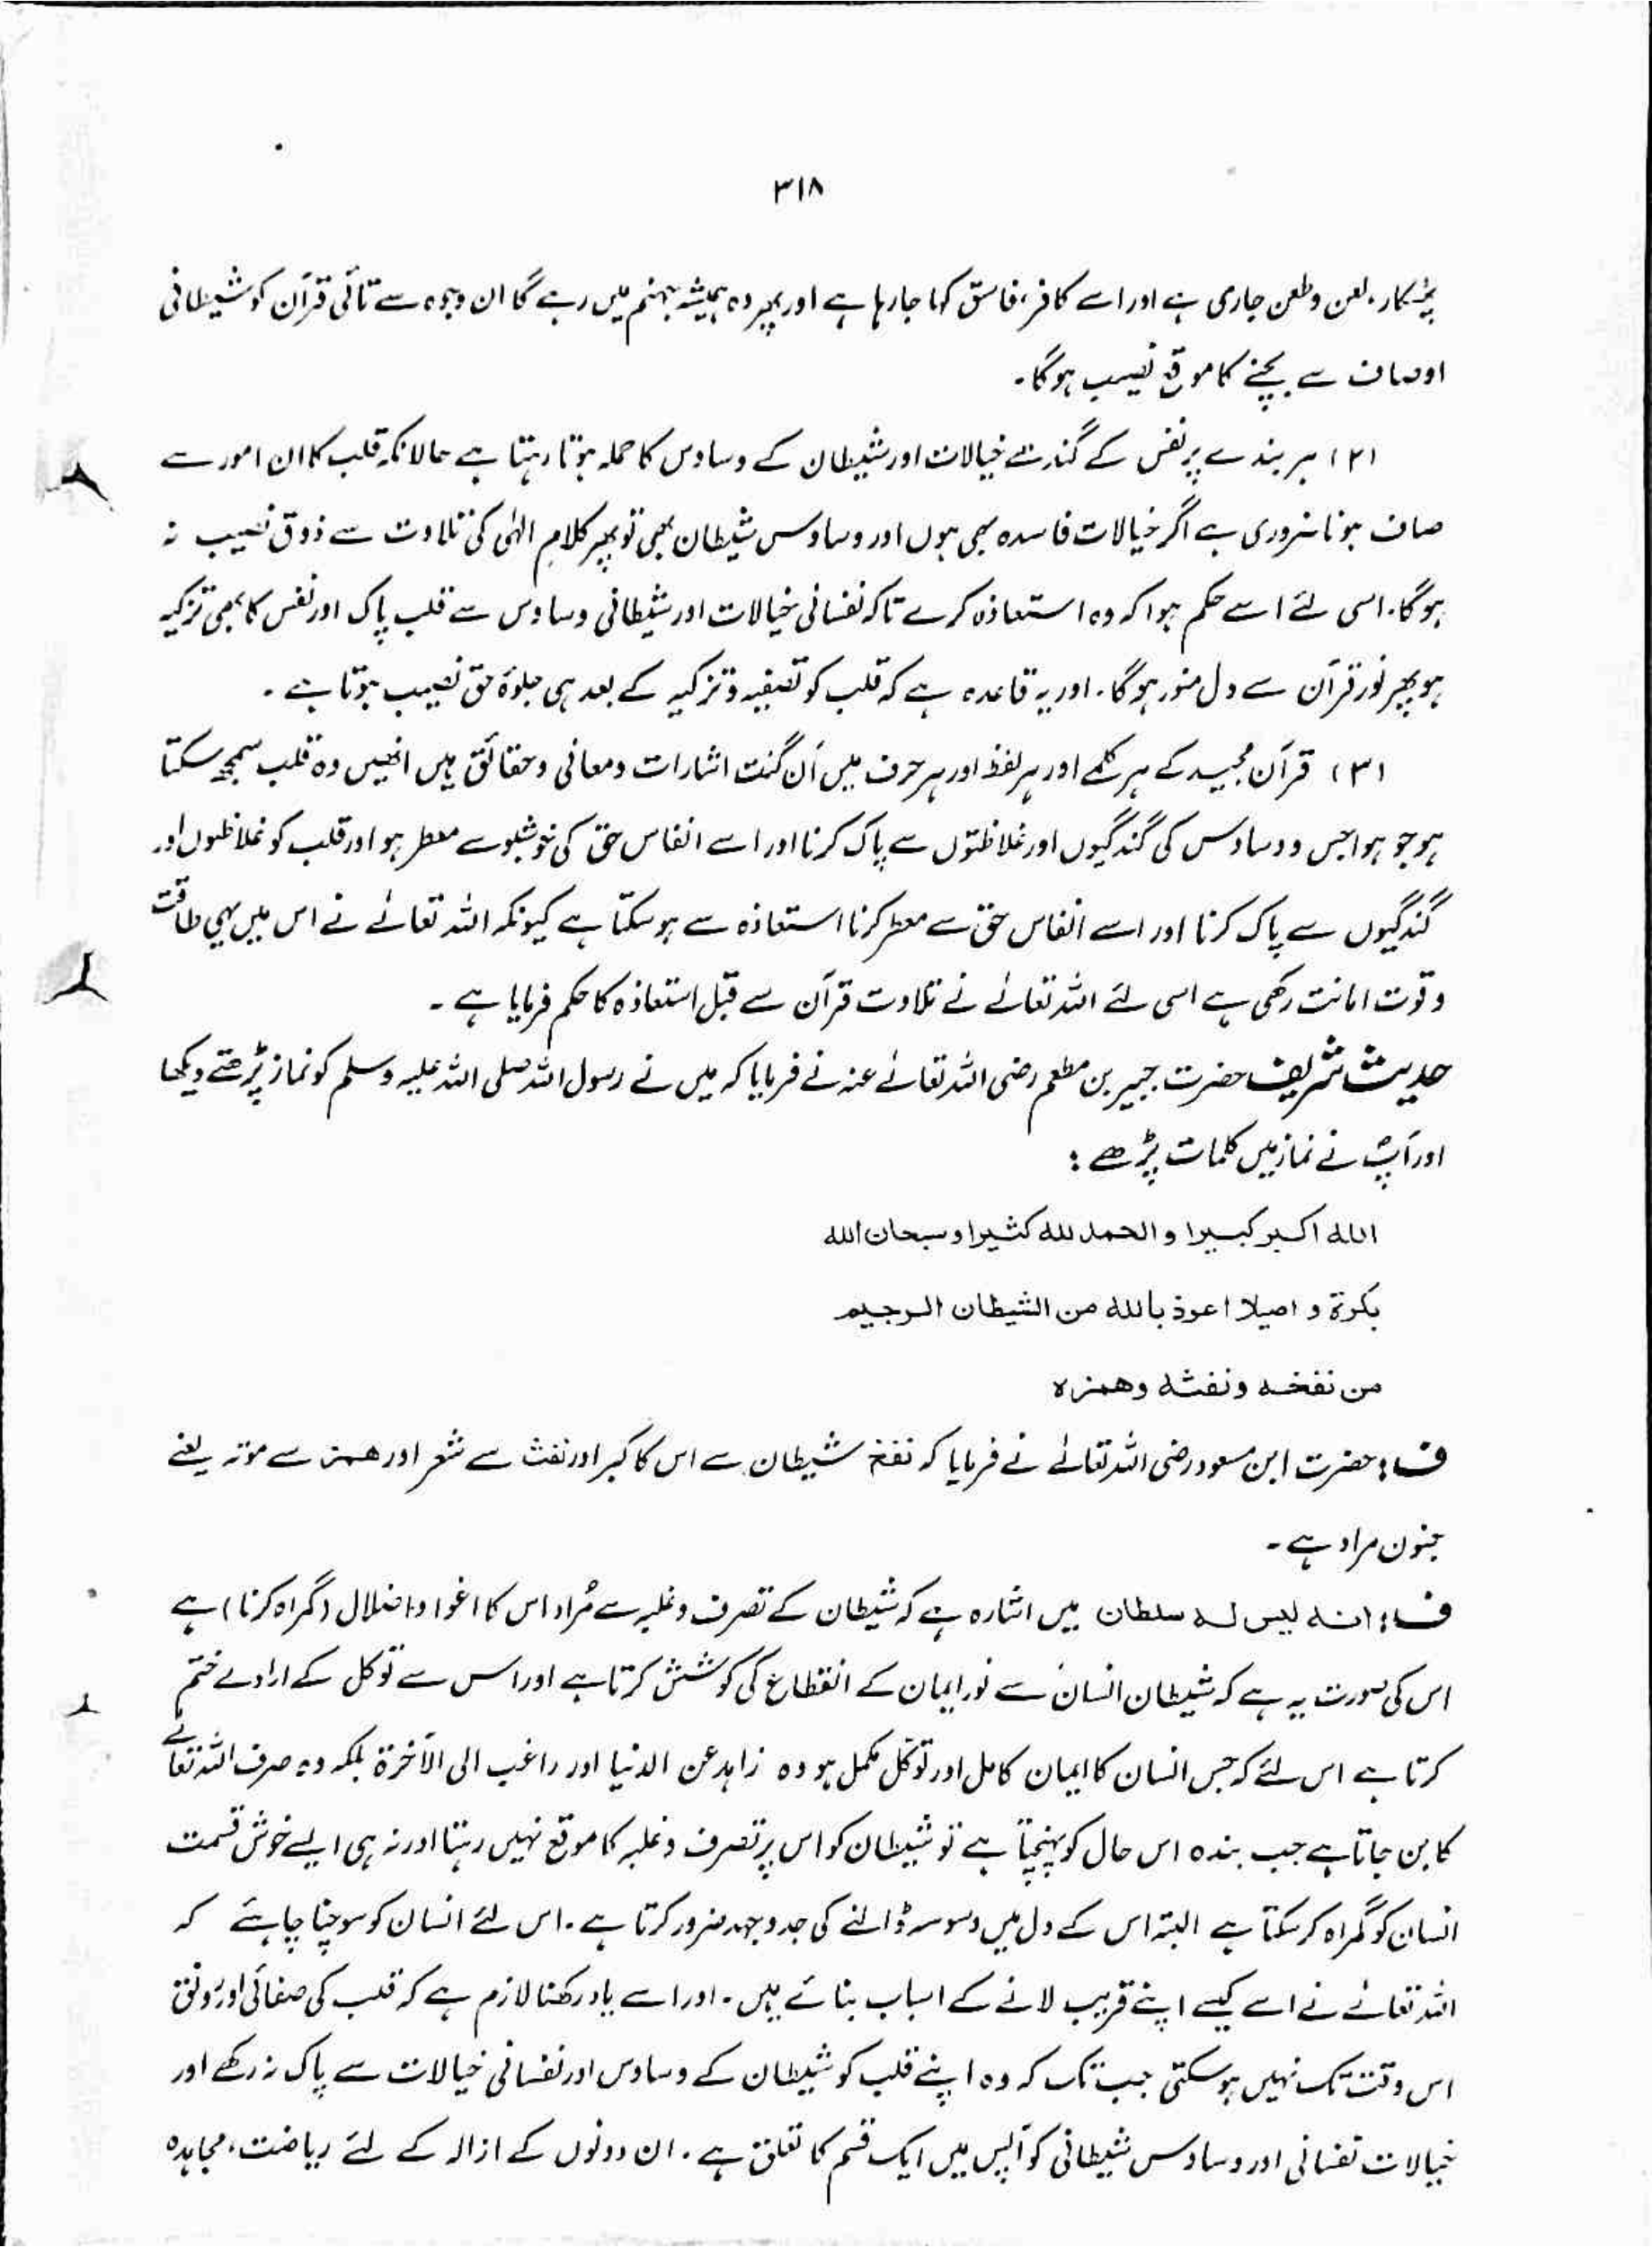 ۳۱۸
پھٹکار، لعن وطعن جاری ہے اور اسے کافر، فاسق کہا جارہا ہے اور پھر وہ ہمیشہ جہنم میں رہے گا ان وجوہ سے تالئ قرآن کو شیطانی
اوصاف سے بچنے کا موقع نصیب ہوگا۔
(۲) ہر بندے پر نفس کے گندے خیالات اور شیطان کے وساوس کا حملہ ہوتا رہتا ہے حالانکہ قلب کا ان امور سے
صاف ہونا ضروری ہے اگر خیالات فاسدہ بھی ہوں اور وساوس شیطان بھی تو پھر کلامِ الٰہی کی تلاوت سے ذوق نصیب نہ
ہوگا۔ اسی لئے اسے حکم ہوا کہ وہ استعاذہ کرے تاکہ نفسانی خیالات اور شیطانی وساوس سے قلب پاک اور نفس کا بھی تزکیہ
ہو پھر نُورِ قرآن سے دل منور ہوگا۔ اور یہ قاعدہ ہے کہ قلب کو تصفیہ و تزکیہ کے بعد ہی جلوۂ حق نصیب ہوتا ہے۔
(۳) قرآن مجید کے ہر کلمے اور ہر لفظ اور ہر حرف میں اَن گنت اشارات و معانی و حقائق ہیں انھیں وہ قلب سمجھ سکتا
ہو جو ہواجس و وساوس کی گندگیوں اور غلاظتوں سے پاک کرنا اور اسے انفاس حق کی خوشبو سے معطر ہو اور قلب کو غلاظوں اور
گندگیوں سے پاک کرنا اور اسے انفاس حق سے معطر کرنا استعاذہ سے ہوسکتا ہے کیونکہ اللہ تعالےٰ نے اس میں یہی طاقت
و قوت امانت رکھی ہے اسی لئے اللہ تعالےٰ نے تلاوت قرآن سے قبل استعاذہ کا حکم فرمایا ہے۔
حدیث شریف حضرت جبیر بن مطعم رضی اللہ تعالےٰ عنہ نے فرمایا کہ میں نے رسول اللہ صلی اللہ علیہ وسلم کو نماز پڑھتے دیکھا
اور آپ نے نماز میں کلمات پڑھے :
الله اکبر کبیرا و الحمد لله کثیرا و سبحان الله
بکرة و اصیلا اعوذ بالله من الشیطان الرجیم
من نفخه ونفثه وهمزه
ف : حضرت ابن مسعود رضی اللہ تعالےٰ نے فرمایا کہ نفخ شیطان سے اس کا کبر اور نفث سے شعر اور همز سے موتہ یعنے
جنون مراد ہے۔
ف : انه لیس له سلطان میں اشارہ ہے کہ شیطان کے تصرف و غلبہ سے مُراد اس کا اغوا و اضلال (گمراہ کرنا) ہے
اس کی صورت یہ ہے کہ شیطان انسان سے نورِ ایمان کے انقطاع کی کوشش کرتا ہے اور اس سے توکل کے ارادے ختم
کرتا ہے اس لئے کہ جس انسان کا ایمان کامل اور توکّل مکمل ہو وہ زاہد عن الدنیا اور راغب الی الآخرۃ بلکہ وہ صرف اللہ تعالےٰ
کا بن جاتا ہے جب بندہ اس حال کو پہنچتا ہے تو شیطان کو اس پر تصرف و غلبہ کا موقع نہیں رہتا اور نہ ہی ایسے خوش قسمت
انسان کو گمراہ کرسکتا ہے البتہ اس کے دل میں وسوسہ ڈالنے کی جدوجہد ضرور کرتا ہے۔ اس لئے انسان کو سوچنا چاہئے کہ
اللہ تعالےٰ نے اسے کیسے اپنے قریب لانے کے اسباب بنائے ہیں۔ اور اسے یاد رکھنا لازم ہے کہ قلب کی صفائی اور رونق
اس وقت تک نہیں ہوسکتی جب تک کہ وہ اپنے قلب کو شیطان کے وساوس اور نفسانی خیالات سے پاک نہ رکھے اور
خیالات نفسانی اور وساوس شیطانی کو آپس میں ایک قسم کا تعلق ہے۔ ان دونوں کے ازالہ کے لئے ریاضت، مجاہدہ